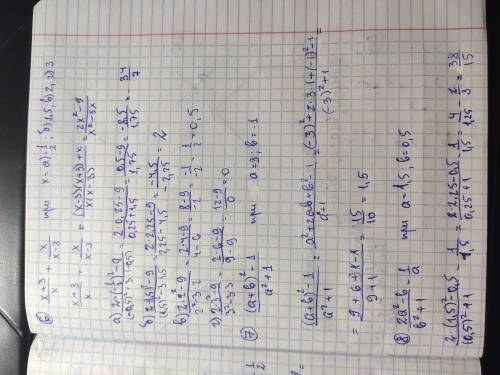 ⑥ (x+3)/x + x/(x-3) при x = а) -1/2; б) 1,5; в) 2; г) 3
(x+3)/x + x/(x-3) = ((x-3)(x+3)+x)/(x(x-3)) = (2x²-9)/(x²-3x)
а) (2·(-1/2)²-9)/((-0,5)²-3·(-0,5)) = (2·0,25-9)/(0,25+1,5) = (0,5-9)/1,75 = -8,5/1,75 = -34/7
б) (2·1,5²-9)/(1,5²-3·1,5) = (2·2,25-9)/(2,25-4,5) = -4,5/-2,25 = 2
в) (2·2²-9)/(2²-3·2) = (2·4-9)/(4-6) = (8-9)/-2 = -1/-2 = 1/2 = 0,5
г) (2·3-9)/(3²-3·3) = (2·6-9)/(9-9) = (12-9)/0 = 0
⑦ ((a+b)²-1)/(a²+1) при a=3; b=-1
((a+b)²-1)/(a²+1) = (a²+2ab+b²-1)/(a²+1) = ((-3)²+2·3·1+(-1)²-1)/((-3)²+1) =
= (9+6+1-1)/(9+1) = 15/10 = 1,5
⑧ (2a²-b)/(b²+1) - 1/a при a=1,5, b=0,5
(2·(1,5)²-0,5)/((0,5)²+1) - 1/1,5 = (2·2,25-0,5)/(0,25+1) - 1/1,5 = 4/1,25 - 2/3 = 38/15